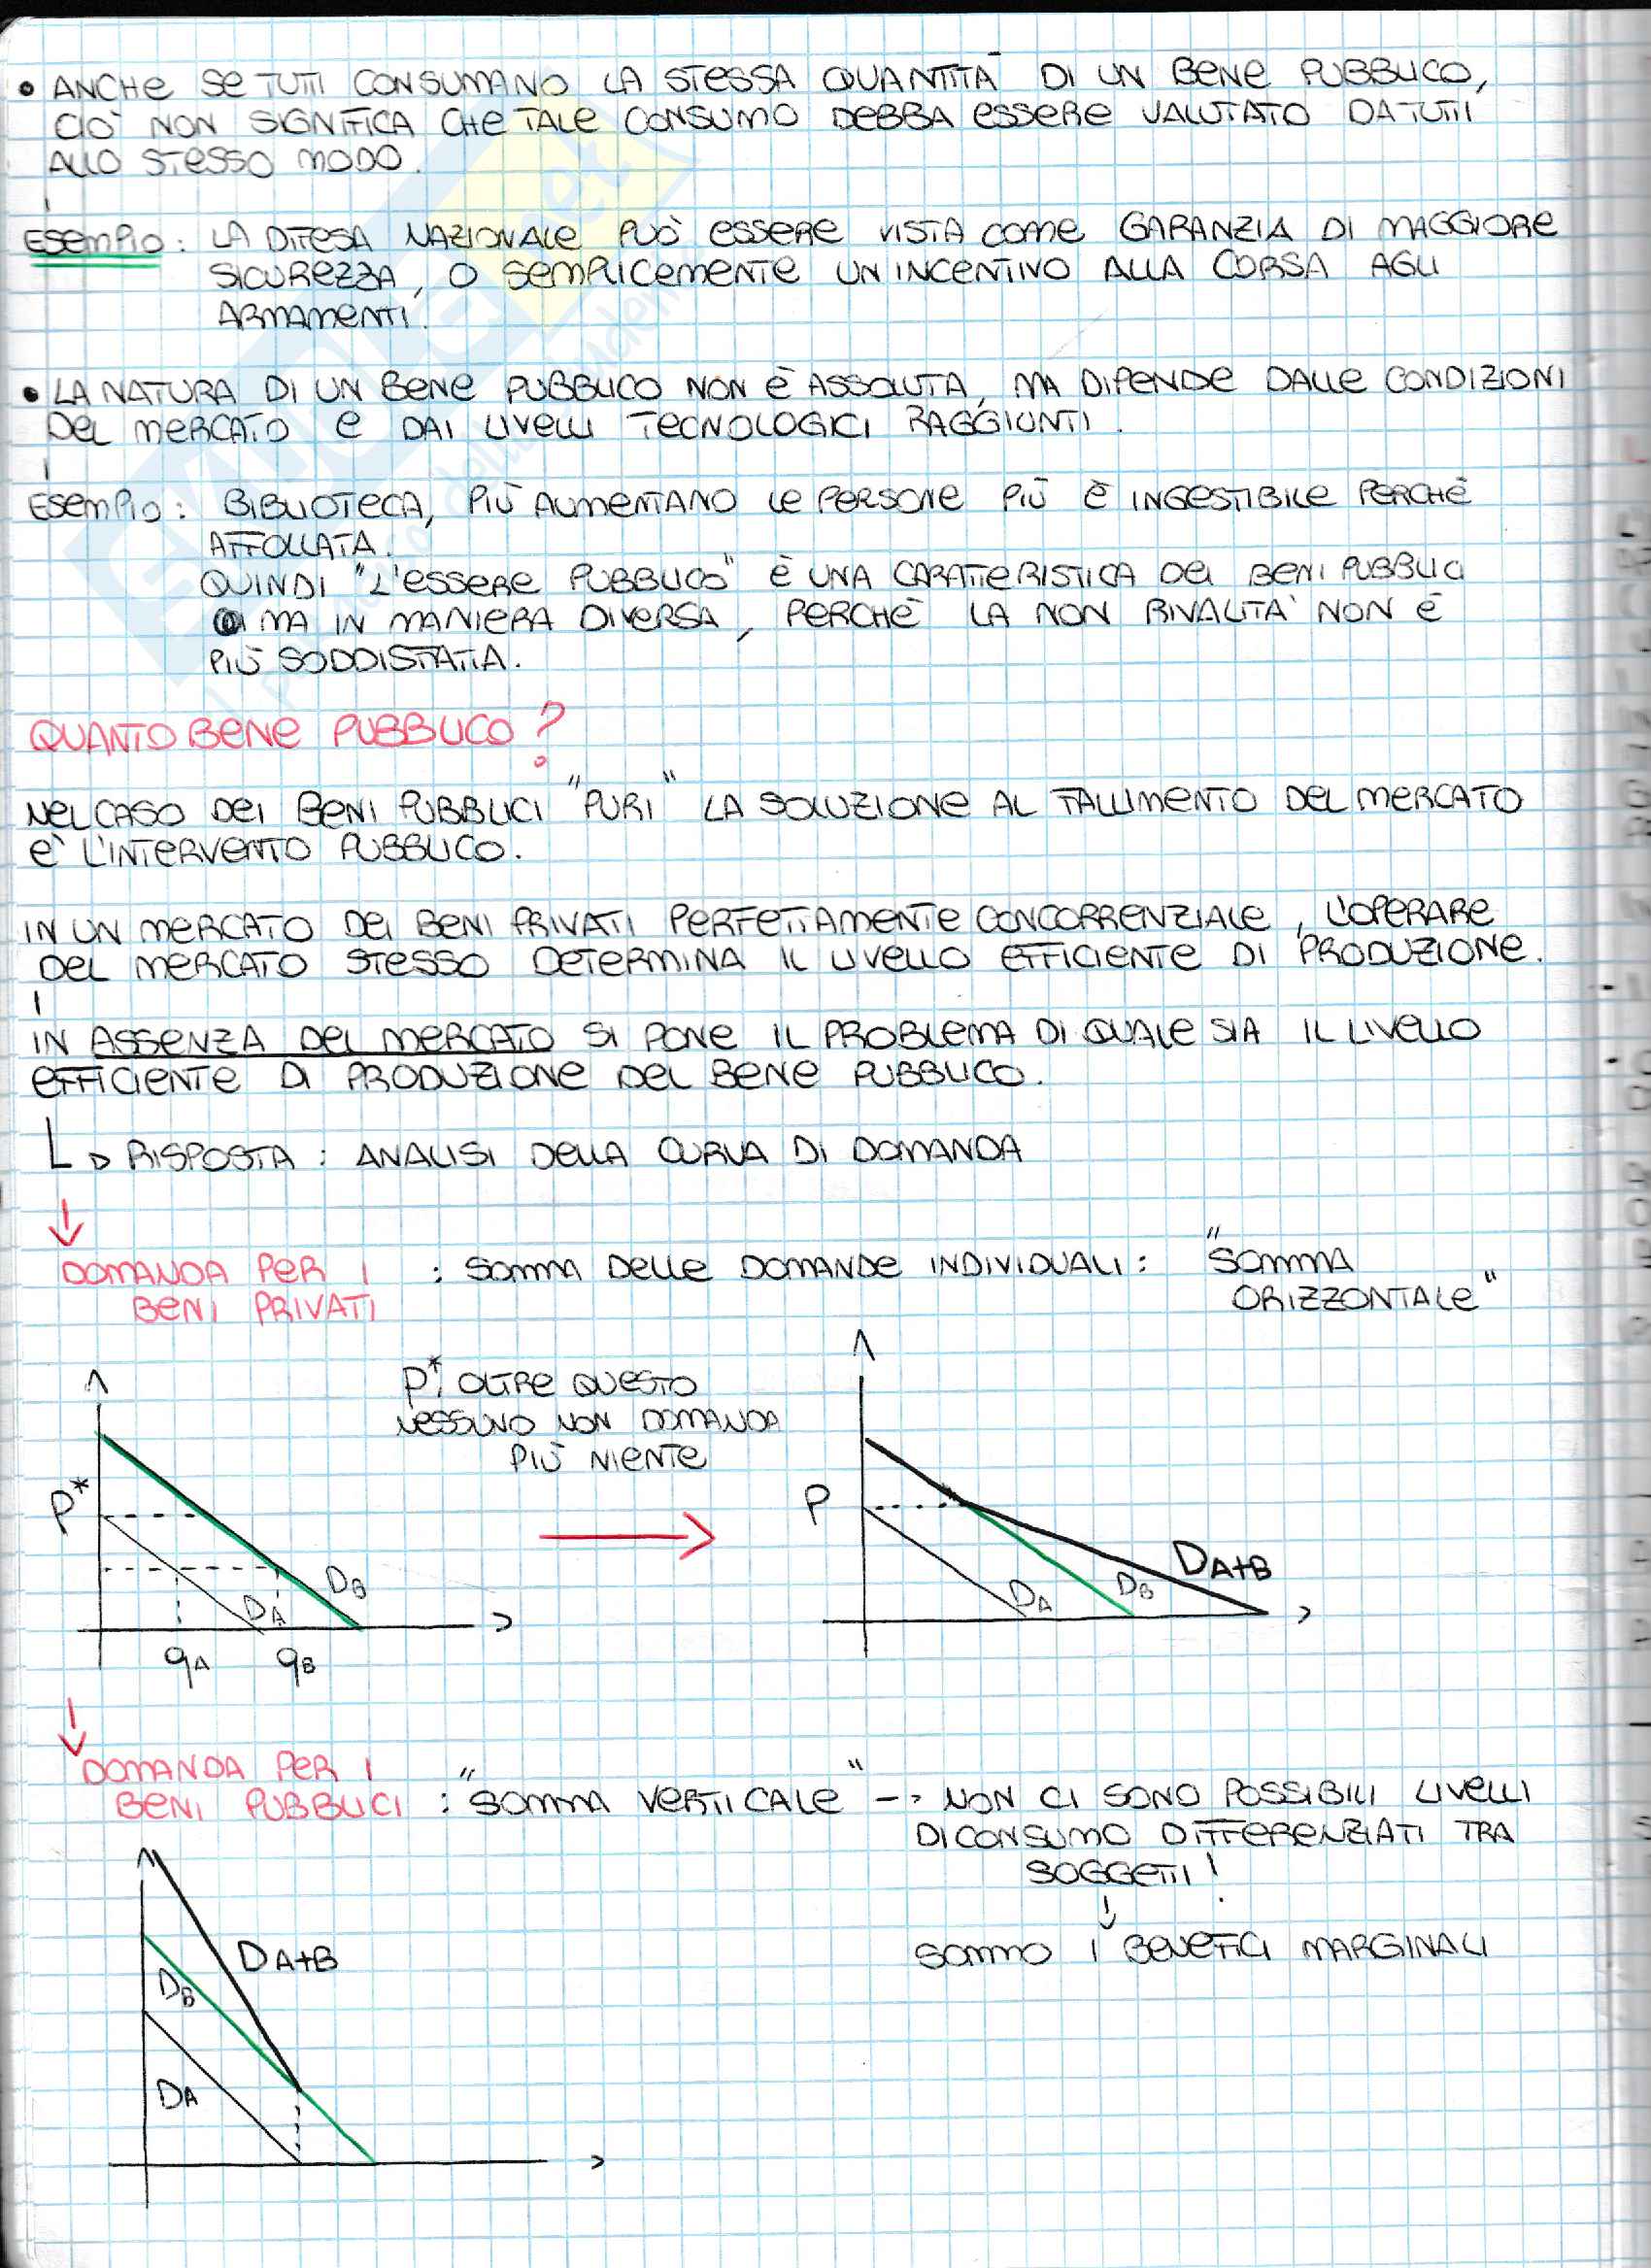 • ANCHE SE TUTTI CONSUMANO LA STESSA QUANTITÀ DI UN BENE PUBBLICO,
CIÒ NON SIGNIFICA CHE TALE CONSUMO DEBBA ESSERE VALUTATO DA TUTTI
ALLO STESSO MODO.
ESEMPIO: LA DIFESA NAZIONALE PUÒ ESSERE VISTA COME GARANZIA DI MAGGIORE
SICUREZZA, O SEMPLICEMENTE UN INCENTIVO ALLA CORSA AGLI
ARMAMENTI.
• LA NATURA DI UN BENE PUBBLICO NON È ASSOLUTA, MA DIPENDE DALLE CONDIZIONI
DEL MERCATO E DAI LIVELLI TECNOLOGICI RAGGIUNTI.
ESEMPIO: BIBLIOTECA, PIÙ AUMENTANO LE PERSONE PIÙ È INGESTIBILE PERCHÈ
AFFOLLATA.
QUINDI "L'ESSERE PUBBLICO" È UNA CARATTERISTICA DEI BENI PUBBLICI
MA IN MANIERA DIVERSA, PERCHÈ LA NON RIVALITA' NON È
PIÙ SODDISFATTA.
QUANTO BENE PUBBLICO?
NEL CASO DEI BENI PUBBLICI "PURI" LA SOLUZIONE AL FALLIMENTO DEL MERCATO
E' L'INTERVENTO PUBBLICO.
IN UN MERCATO DEI BENI PRIVATI PERFETTAMENTE CONCORRENZIALE, L'OPERARE
DEL MERCATO STESSO DETERMINA IL LIVELLO EFFICIENTE DI PRODUZIONE.
IN ASSENZA DEL MERCATO SI PONE IL PROBLEMA DI QUALE SIA IL LIVELLO
EFFICIENTE DI PRODUZIONE DEL BENE PUBBLICO.
RISPOSTA: ANALISI DELLA CURVA DI DOMANDA
DOMANDA PER I : SOMMA DELLE DOMANDE INDIVIDUALI: "SOMMA
BENI PRIVATI ORIZZONTALE"
P*: OLTRE QUESTO
NESSUNO NON DOMANDA
PIÙ NIENTE
P*
DA
DB
qA qB
P
DA
DB
DA+B
DOMANDA PER I
BENI PUBBLICI : "SOMMA VERTICALE" --> NON CI SONO POSSIBILI LIVELLI
DI CONSUMO DIFFERENZIATI TRA
SOGGETTI!
SOMMO I BENEFICI MARGINALI
DA+B
DB
DA